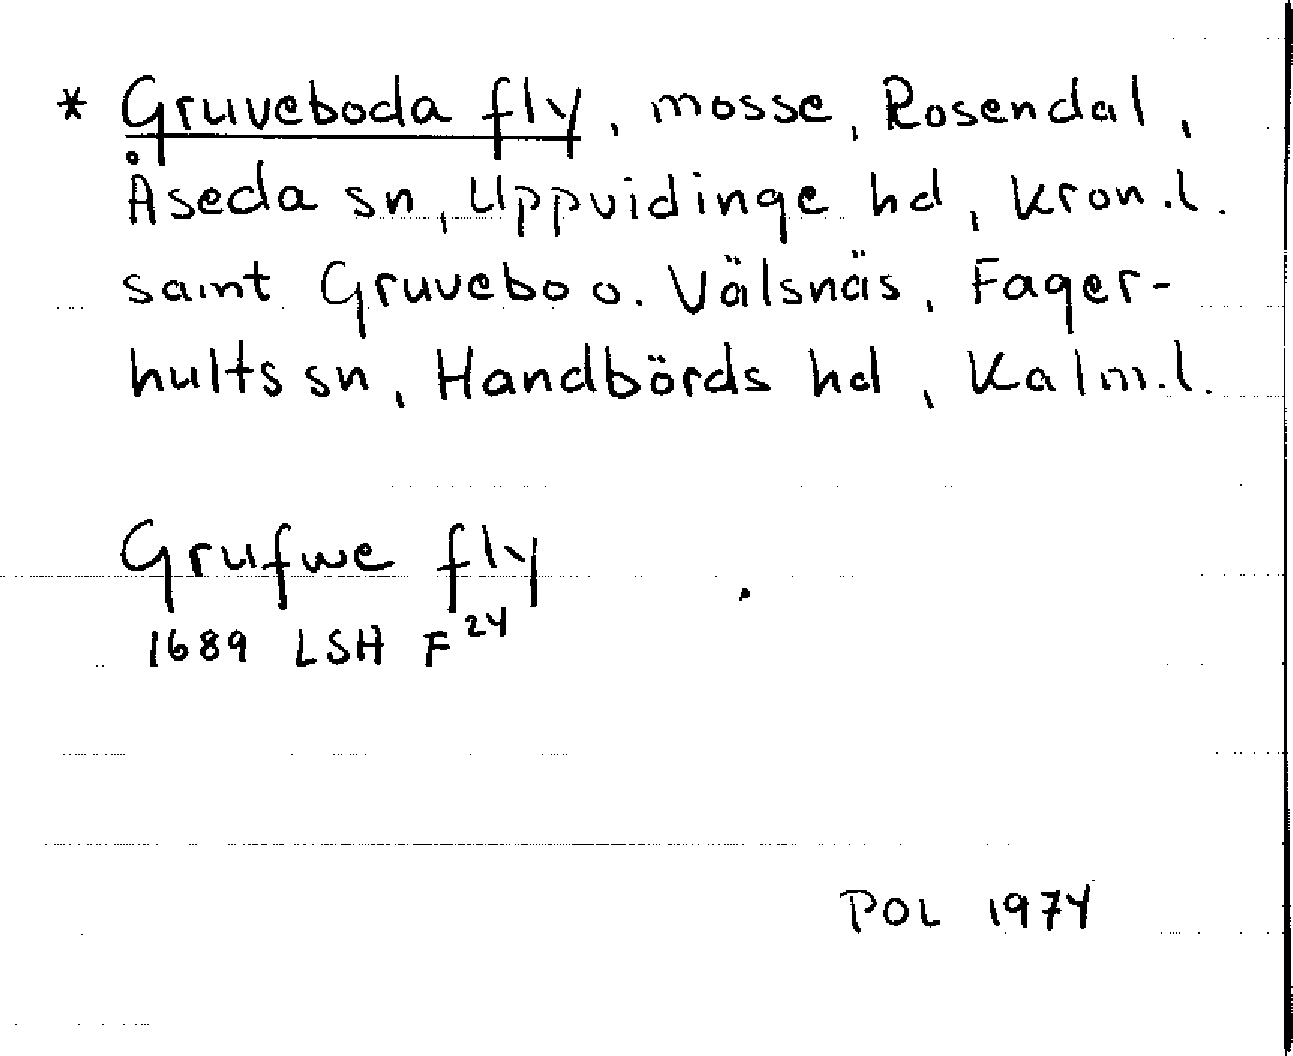 * Gruveboda fly, mosse, Rosendal,
Åseda sn, Uppvidinge hd, Kron.l.
samt Gruvebo o. Välsnäs, Fager-
hults sn, Handbörds hd, Kalm.l.
Grufwe fly
1689 LSH F 24
POL 1974